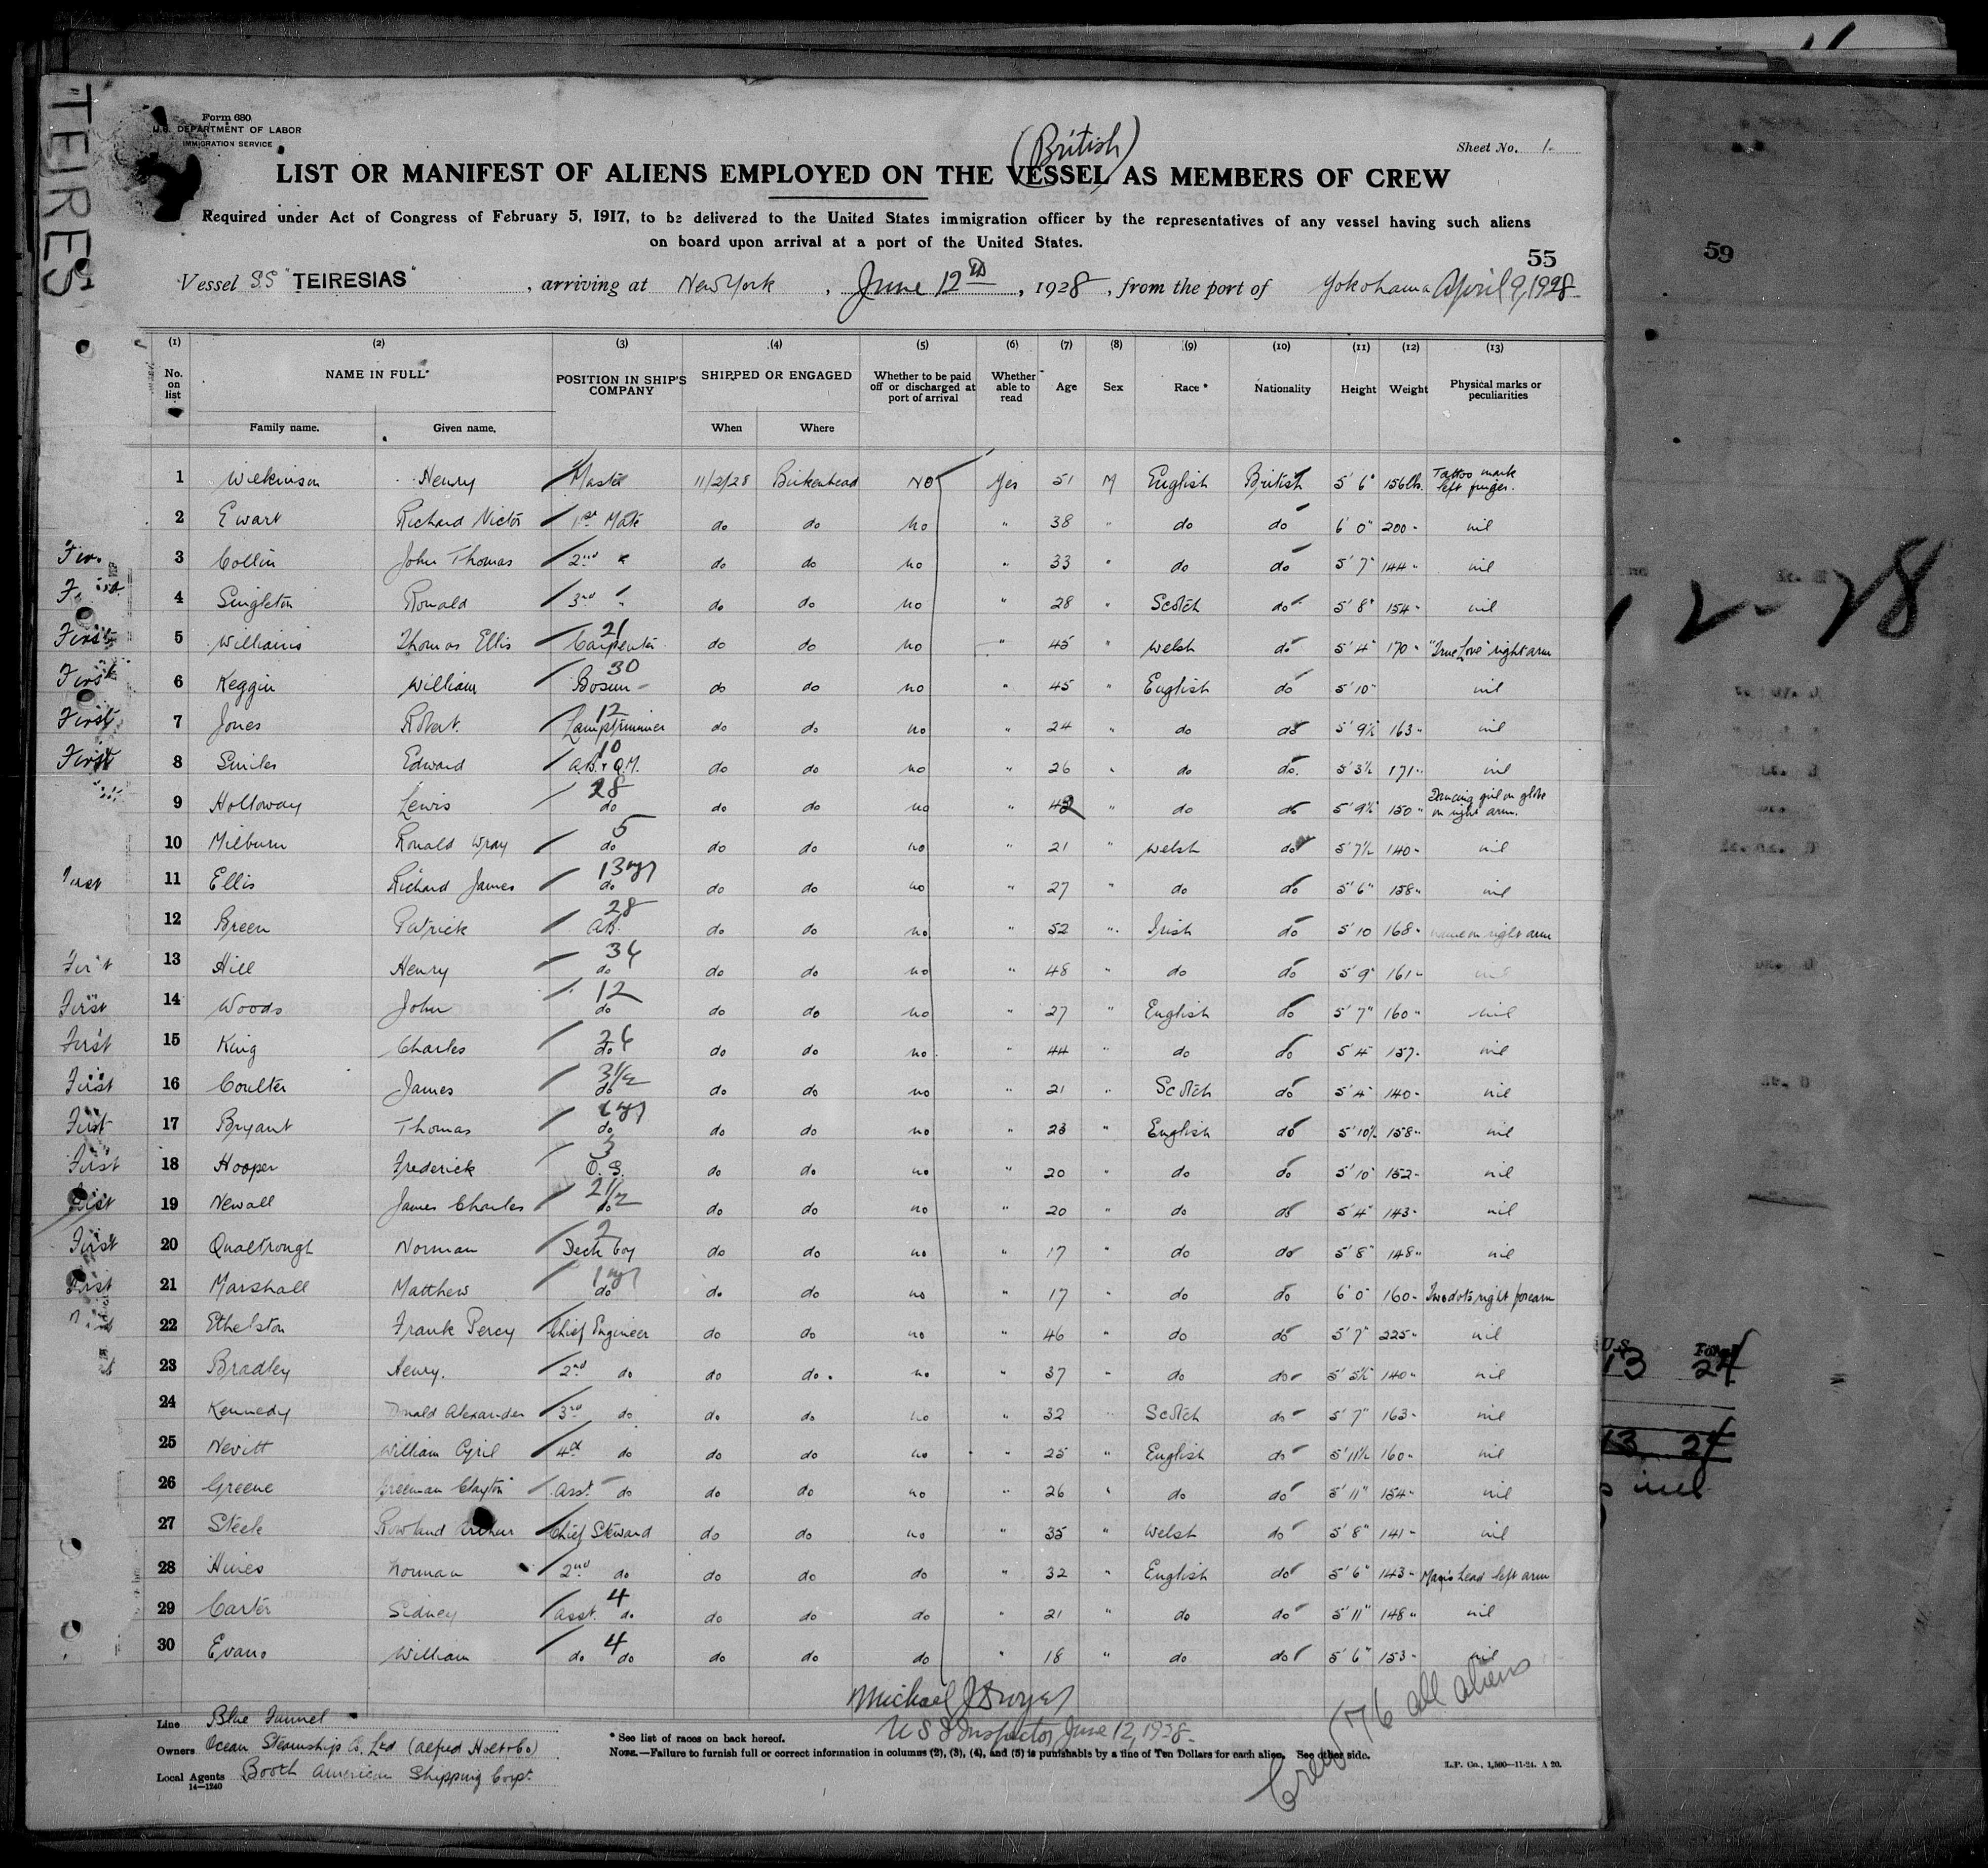 TEIRES
Form 680
U.S. DEPARTMENT OF LABOR
IMMIGRATION SERVICE
Sheet No. 1.
(British)
LIST OR MANIFEST OF ALIENS EMPLOYED ON THE VESSEL AS MEMBERS OF CREW
Required under Act of Congress of February 5, 1917, to be delivered to the United States immigration officer by the representatives of any vessel having such aliens
on board upon arrival at a port of the United States.
55
59
Vessel SS "TEIRESIAS" , arriving at New York , June 12th , 1928 , from the port of Yokohama April 9, 1928
(1) (2) (3) (4) (5) (6) (7) (8) (9) (10) (11) (12) (13)
No. on list NAME IN FULL POSITION IN SHIP'S COMPANY SHIPPED OR ENGAGED Whether to be paid off or discharged at port of arrival Whether able to read Age Sex Race * Nationality Height Weight Physical marks or peculiarities
Family name. Given name. When Where
1 Wilkinson Henry Master 11/2/28 Birkenhead No Yes 51 M English British 5' 6" 156 lbs. Tattoo mark left finger.
2 Ewart Richard Victor 1st Mate do do no " 38 " do do 6' 0" 200 " nil
Fir. 3 Collin John Thomas 2nd " do do no " 33 " do do 5' 7" 144 " nil
4 Singleton Ronald 3rd " do do no " 28 " Scotch do 5' 8" 154 " nil
First 5 Williams Thomas Ellis 21 Carpenter do do no " 45 " Welsh do 5' 4" 170 " "True Love" right arm
First 6 Keggin William 30 Bosun do do no " 45 " English do 5' 10" nil
First 7 Jones Robert. 12 Lamptrimmer do do no " 24 " do do 5' 9½ 163 " nil
First 8 Smiles Edward 10 A.B. & Q.M. do do no " 26 " do do. 5' 3½ 171 " nil
9 Holloway Lewis 28 do do do no " 42 " do do 5' 9½ 150 " Dancing girl on globe on right arm.
10 Milburn Ronald Wray 5 do do do no " 21 " Welsh do 5' 7½ 140 " nil
First 11 Ellis Richard James 13 yrs do do do no " 27 " do do 5' 6" 158 " nil
12 Breen Patrick 28 A.B. do do no " 52 " Irish do 5' 10 168 " name on right arm
First 13 Hill Henry 34 do do do no " 48 " do do 5' 9" 161 " nil
First 14 Woods John 12 do do do no " 27 " English do 5' 7" 160 " nil
First 15 King Charles 26 do do do no " 44 " do do 5' 4" 157 " nil
First 16 Coulter James 3½ do do do no " 21 " Scotch do 5' 4" 140 " nil
First 17 Bryant Thomas do do do no " 23 " English do 5' 10½ 158 " nil
First 18 Hooper Frederick 3 O.S. do do no " 20 " do do 5' 10" 152 " nil
First 19 Newall James Charles 2½ do do do no " 20 " do do 5' 4" 143 " nil
First 20 Qualtrough Norman 2 Deck boy do do no " 17 " do do 5' 8" 148 " nil
First 21 Marshall Matthew 1 yr do do do no " 17 " do do 6' 0" 160 " Two dots right forearm
22 Ethelston Frank Percy Chief Engineer do do no " 46 " do do 5' 7" 225 " nil
23 Bradley Henry. 2nd do do do. no " 37 " do do 5' 5½ 140 " nil
24 Kennedy Donald Alexander 3rd do do do no " 32 " Scotch do 5' 7" 163 " nil
25 Nevitt William Cyril 4th do do do no " 25 " English do 5' 11½ 160 " nil
26 Greene Freeman Clayton Asst. do do do no " 26 " do do 5' 11" 154 " nil
27 Steele Rowland Arthur Chief Steward do do no " 35 " Welsh do 5' 8" 141 " nil
28 Hines Norman 2nd do do do do " 32 " English do 5' 6" 143 " Man's head left arm
29 Carter Sidney Asst. 4 do do do do " 21 " do do 5' 11" 148 " nil
30 Evans William do 4 do do do do " 18 " do do 5' 6" 153 " nil
Michael J Dwyer
U S I Inspector, June 12, 1928.
Crew 76 all aliens
Line Blue Funnel
Owners Ocean Steamship Co. Ltd (Alfred Holt & Co)
Local Agents Booth American Shipping Corpt.
14—1240
* See list of races on back hereof.
NOTE.—Failure to furnish full or correct information in columns (2), (3), (4), and (5) is punishable by a fine of Ten Dollars for each alien. See other side.
L.P. Co., 1,500—11-24. A 20.
2-28
U.S.
13 24
13 24